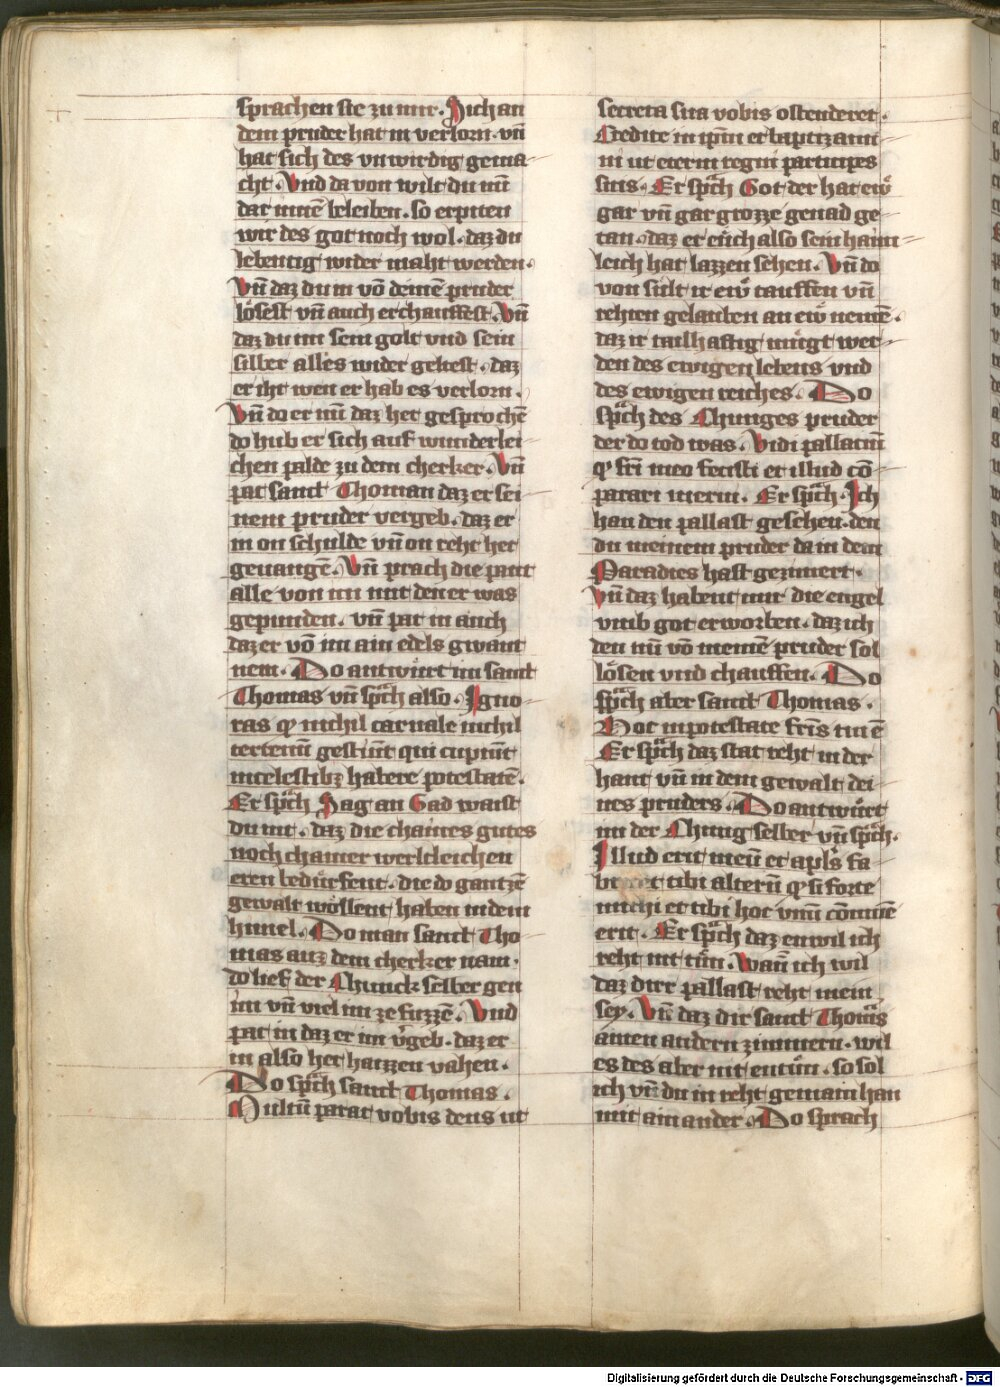 sprachen sie zu mir. Sich an
dem pruder hat in verlorn. vn̄
hat sich des vnwirdig gema-
cht. Vnd da von wilt du nu̅
dar inne̅ beleiben. so erpiten
wir des got noch wol. daz du
lebentig wider maht werden.
Vn̄ daz du in vo̅ deine̅ pruder
lösest vn̄ auch erchauffest. Vn̄
daz du im sein golt vnd sein
silber alles wider geltest. daz
er iht wen er hab es verlorn.
Vn̄ do er nu̅ daz het gesproche̅
do hub er sich auf wunderlei-
chen palde zu dem cherker. Vn̄
pat sand Thoman daz er sei-
nem pruder vergeb. daz er
in on schulde vn̄ on reht het
geuange̅. Vn̄ prach die pant
alle von im mit den er was
gepunden. vn̄ pat in auch
daz er vo̅ im ain edels gwant
nem. Do antwürt im sand
Thomas vn̄ sprͣch also. Igno-
ras qͥ nichil carnale nichil
terrenu̅ gestiu̅t qui cupiu̅t
in celestibꝫ habere potestate̅.
Er sprͣch Sag an Gad waist
du nit. daz die chaines gutes
noch chainer werltleichen
eren bedürfent. die do gantze̅
gewalt wöllent haben in dem
himel. Do man sand Tho-
mas auz dem cherker nam.
do lief der Chunick selber gen
im vn̄ viel im ze fuzze̅. Vnd
pat in daz er im v̓geb. daz er
in also het haizzen vahen.
Do sprͣch sand Thomas.
Multu̅ parat vobis deus ut
secreta sua vobis ostenderet.
Credite in ipm̄ et baptizami-
ni ut eterni regni participes
sitis. Er sprͣch Got der hat ew̎
gar vn̄ gar grozze genad ge-
tan. daz er euch also sein haim-
leich hat lazzen sehen. Vn̄ do
von sult ir ew̎ tauffen vn̄
rehten gelauben an ew̎ neme̅.
daz ir tailhaftig mügt wer-
den des ewigen lebens vnd
des ewigen reiches. Do
sprͣch des Chuniges pruder
der do tod was. Vidi pallaciu̅
qͥ frī meo fecisti et illud co̅-
parari merui. Er sprͣch. Ich
han den pallast gesehen. den
du meinem pruder da in dem
Paradies hast gezimert.
vn̄ daz habent mir die engel
vmb got erworben. daz ich
den nu̅ vo̅ meine̅ pruder sol
lösen vnd chauffen. Do
sprͣch aber sand Thomas.
Hoc in potestate frīs tui ē
Er sprͣch daz stat reht in der
hant vn̄ in dem gewalt dei-
nes pruders. Do antwürt
im der Chunig selber vn̄ sprͣch.
Illud erit meu̅ et apl̄s fa-
bricet tibi alteru̅ qͥ si forte
michi et tibi hoc vnu̅ co̅mune
erit. Er sprͣch daz enwil ich
reht nit tün. Wan̄ ich wil
daz dire pallast reht mein
sey. Vn̄ daz dir sand Thomͣs
ainen andern zimmern. wil
es des aber nit entün. so sol
ich vn̄ du in reht gemain han
mit ain ander. Do sprach
Digitalisierung gefördert durch die Deutsche Forschungsgemeinschaft - DFG